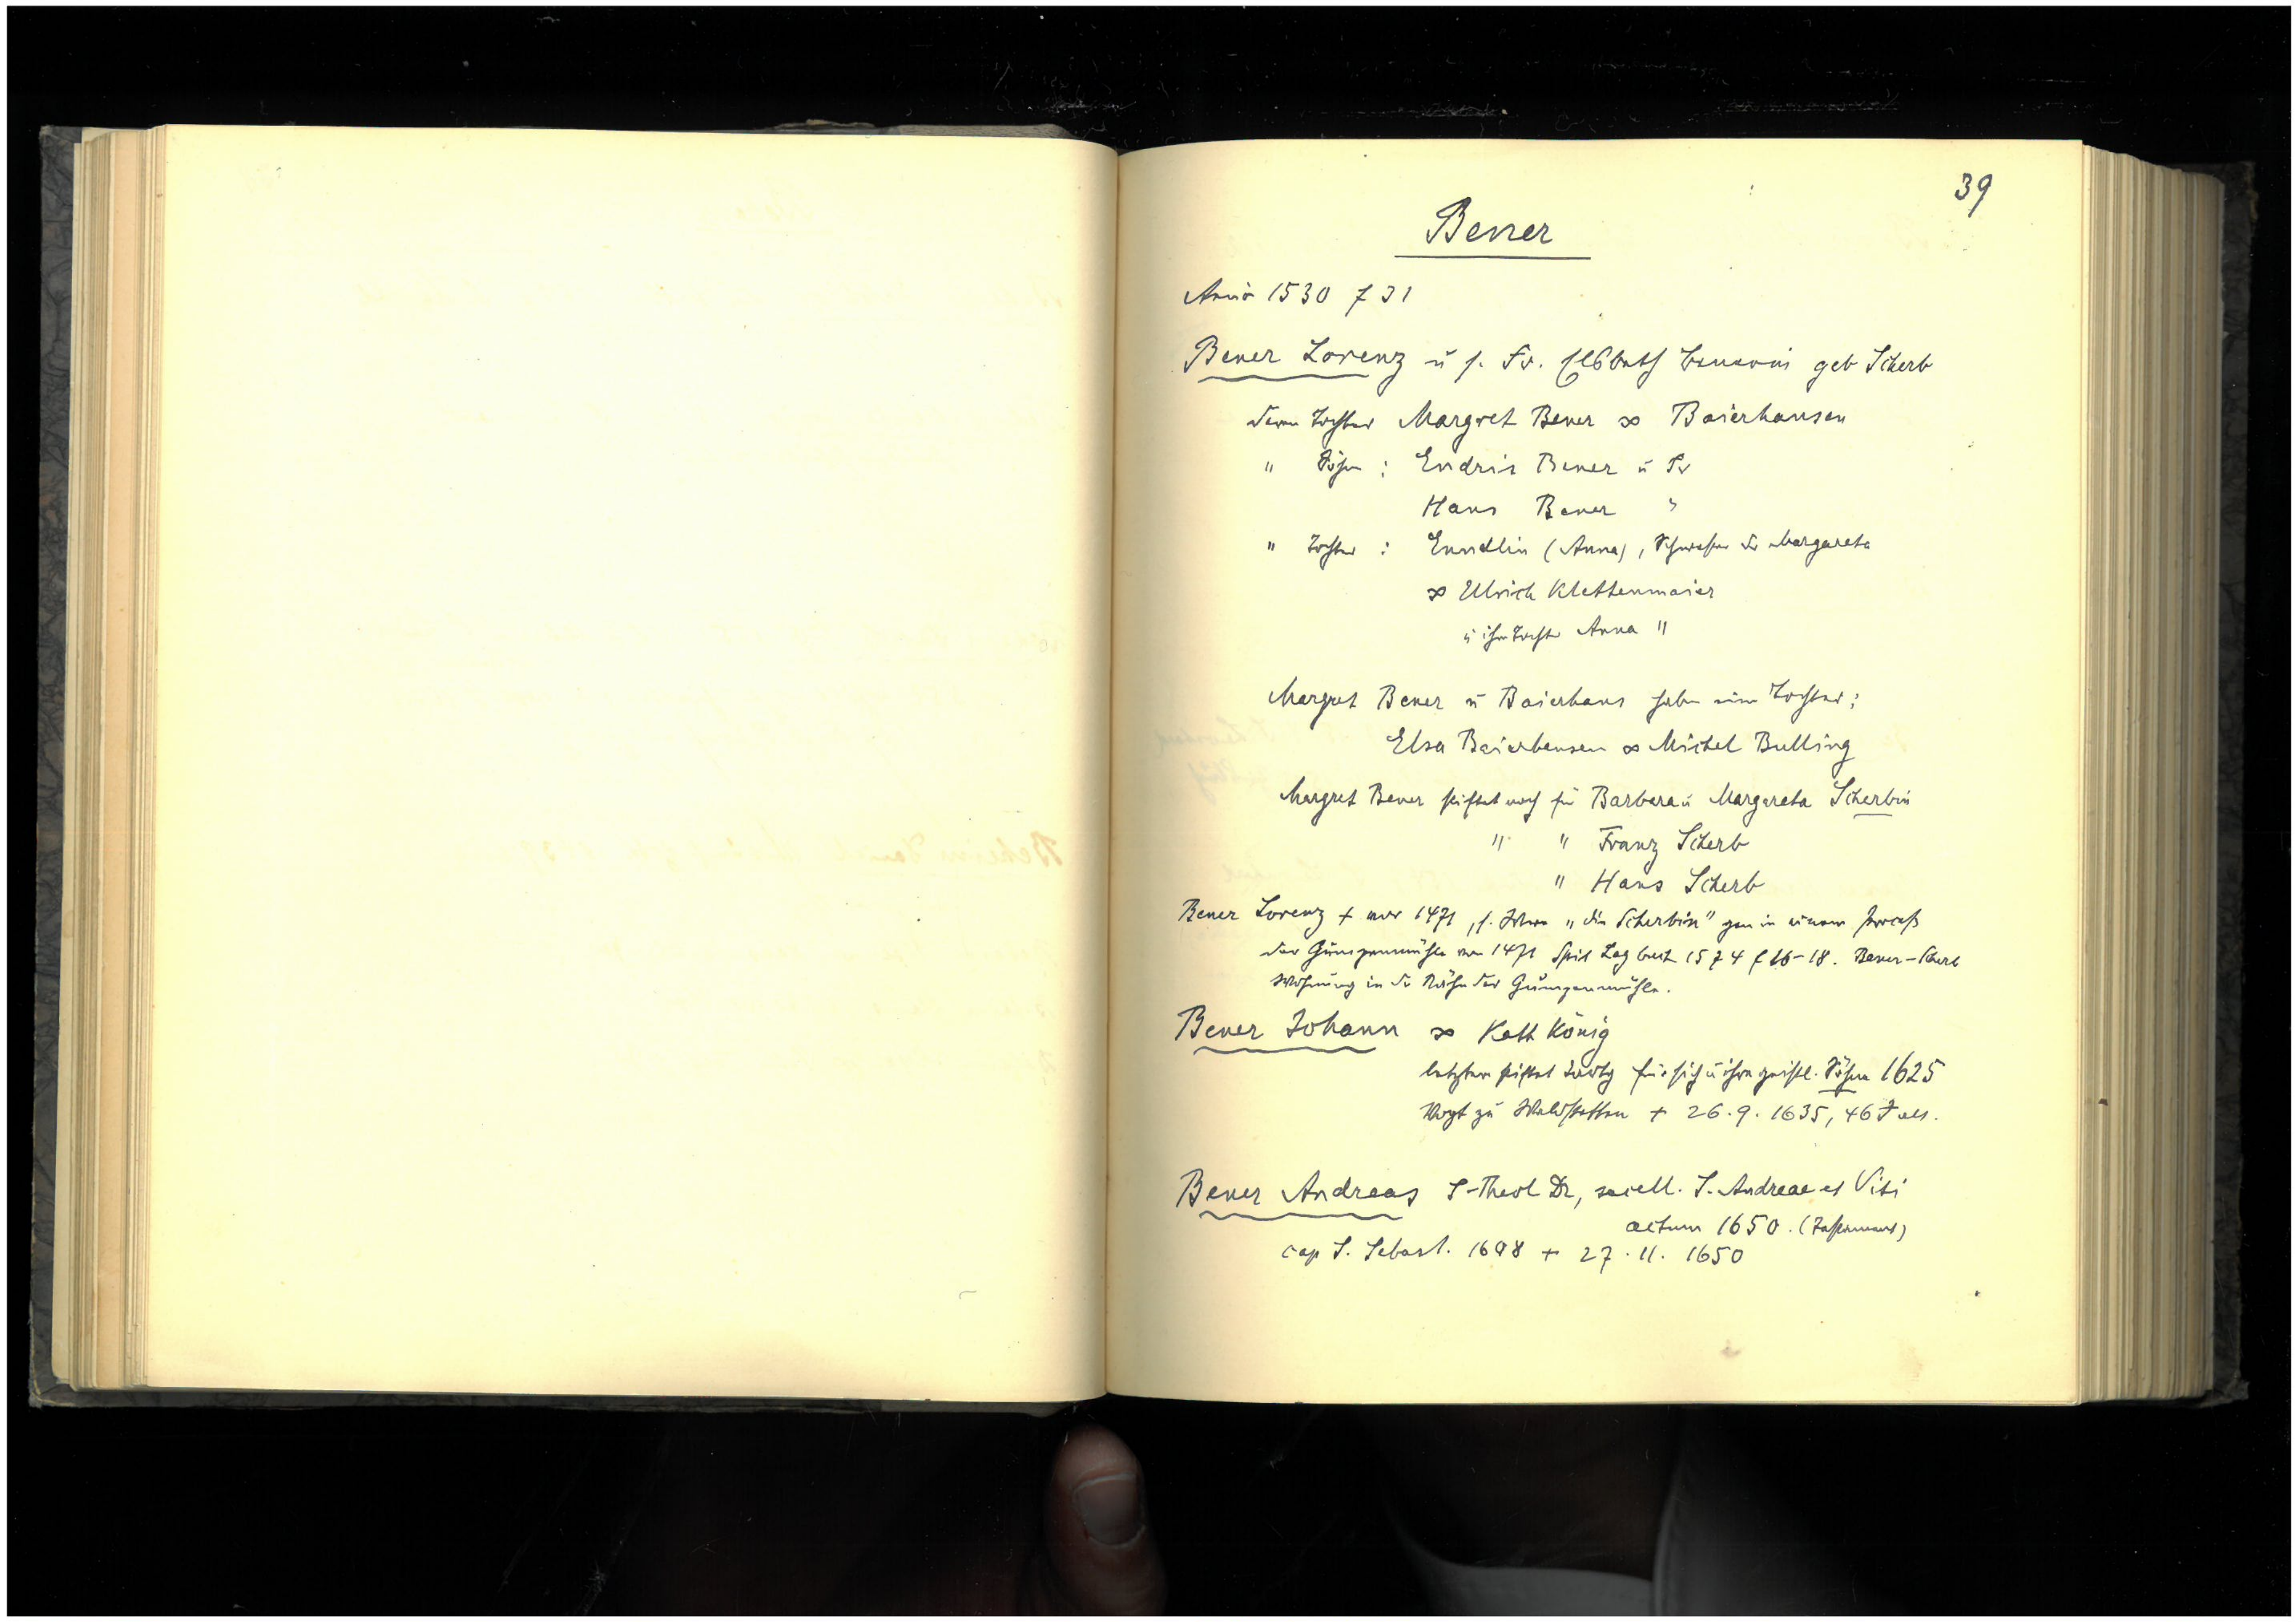 39
Bener
Anno 1530 f 31
Bener Lorenz u s. Fr. Elsbeth Benerin geb Scherb
deren Tochter Margret Bener ∞ Baierhansen
" Söhne : Endris Bener u Fr
Hans Bener "
" Tochter : Enndlin (Anna), Schwester der Margareta
∞ Ulrich Klettenmaier
u ihre Tochter Anna "
Margret Bener u Baierhans haben eine Tochter:
Elsa Baierhansen ∞ Michel Bulling
Margret Bener stiftet noch für Barbara u Margareta Scherbin
" " Franz Scherb
" Hans Scherb
Bener Lorenz + vor 1471, s. Witwe "die Scherbin" gen in einem Prozeß
der Gumpenmühle von 1471 Spit Lagbuch 1574 f 16-18. Bener-Scherb
Wohnung in der Nähe der Gumpenmühle.
Bener Johann ∞ Kath König
letztere stiftet für sich u ihre geistl. Söhne 1625
Vogt zu Waldstetten + 26.9. 1635, 46 J alt.
Bener Andreas S-Theol Dr, sacell. S. Andreae et Viti
actum 1650. (Testament)
cap S. Sebast. 1648 + 27.11. 1650